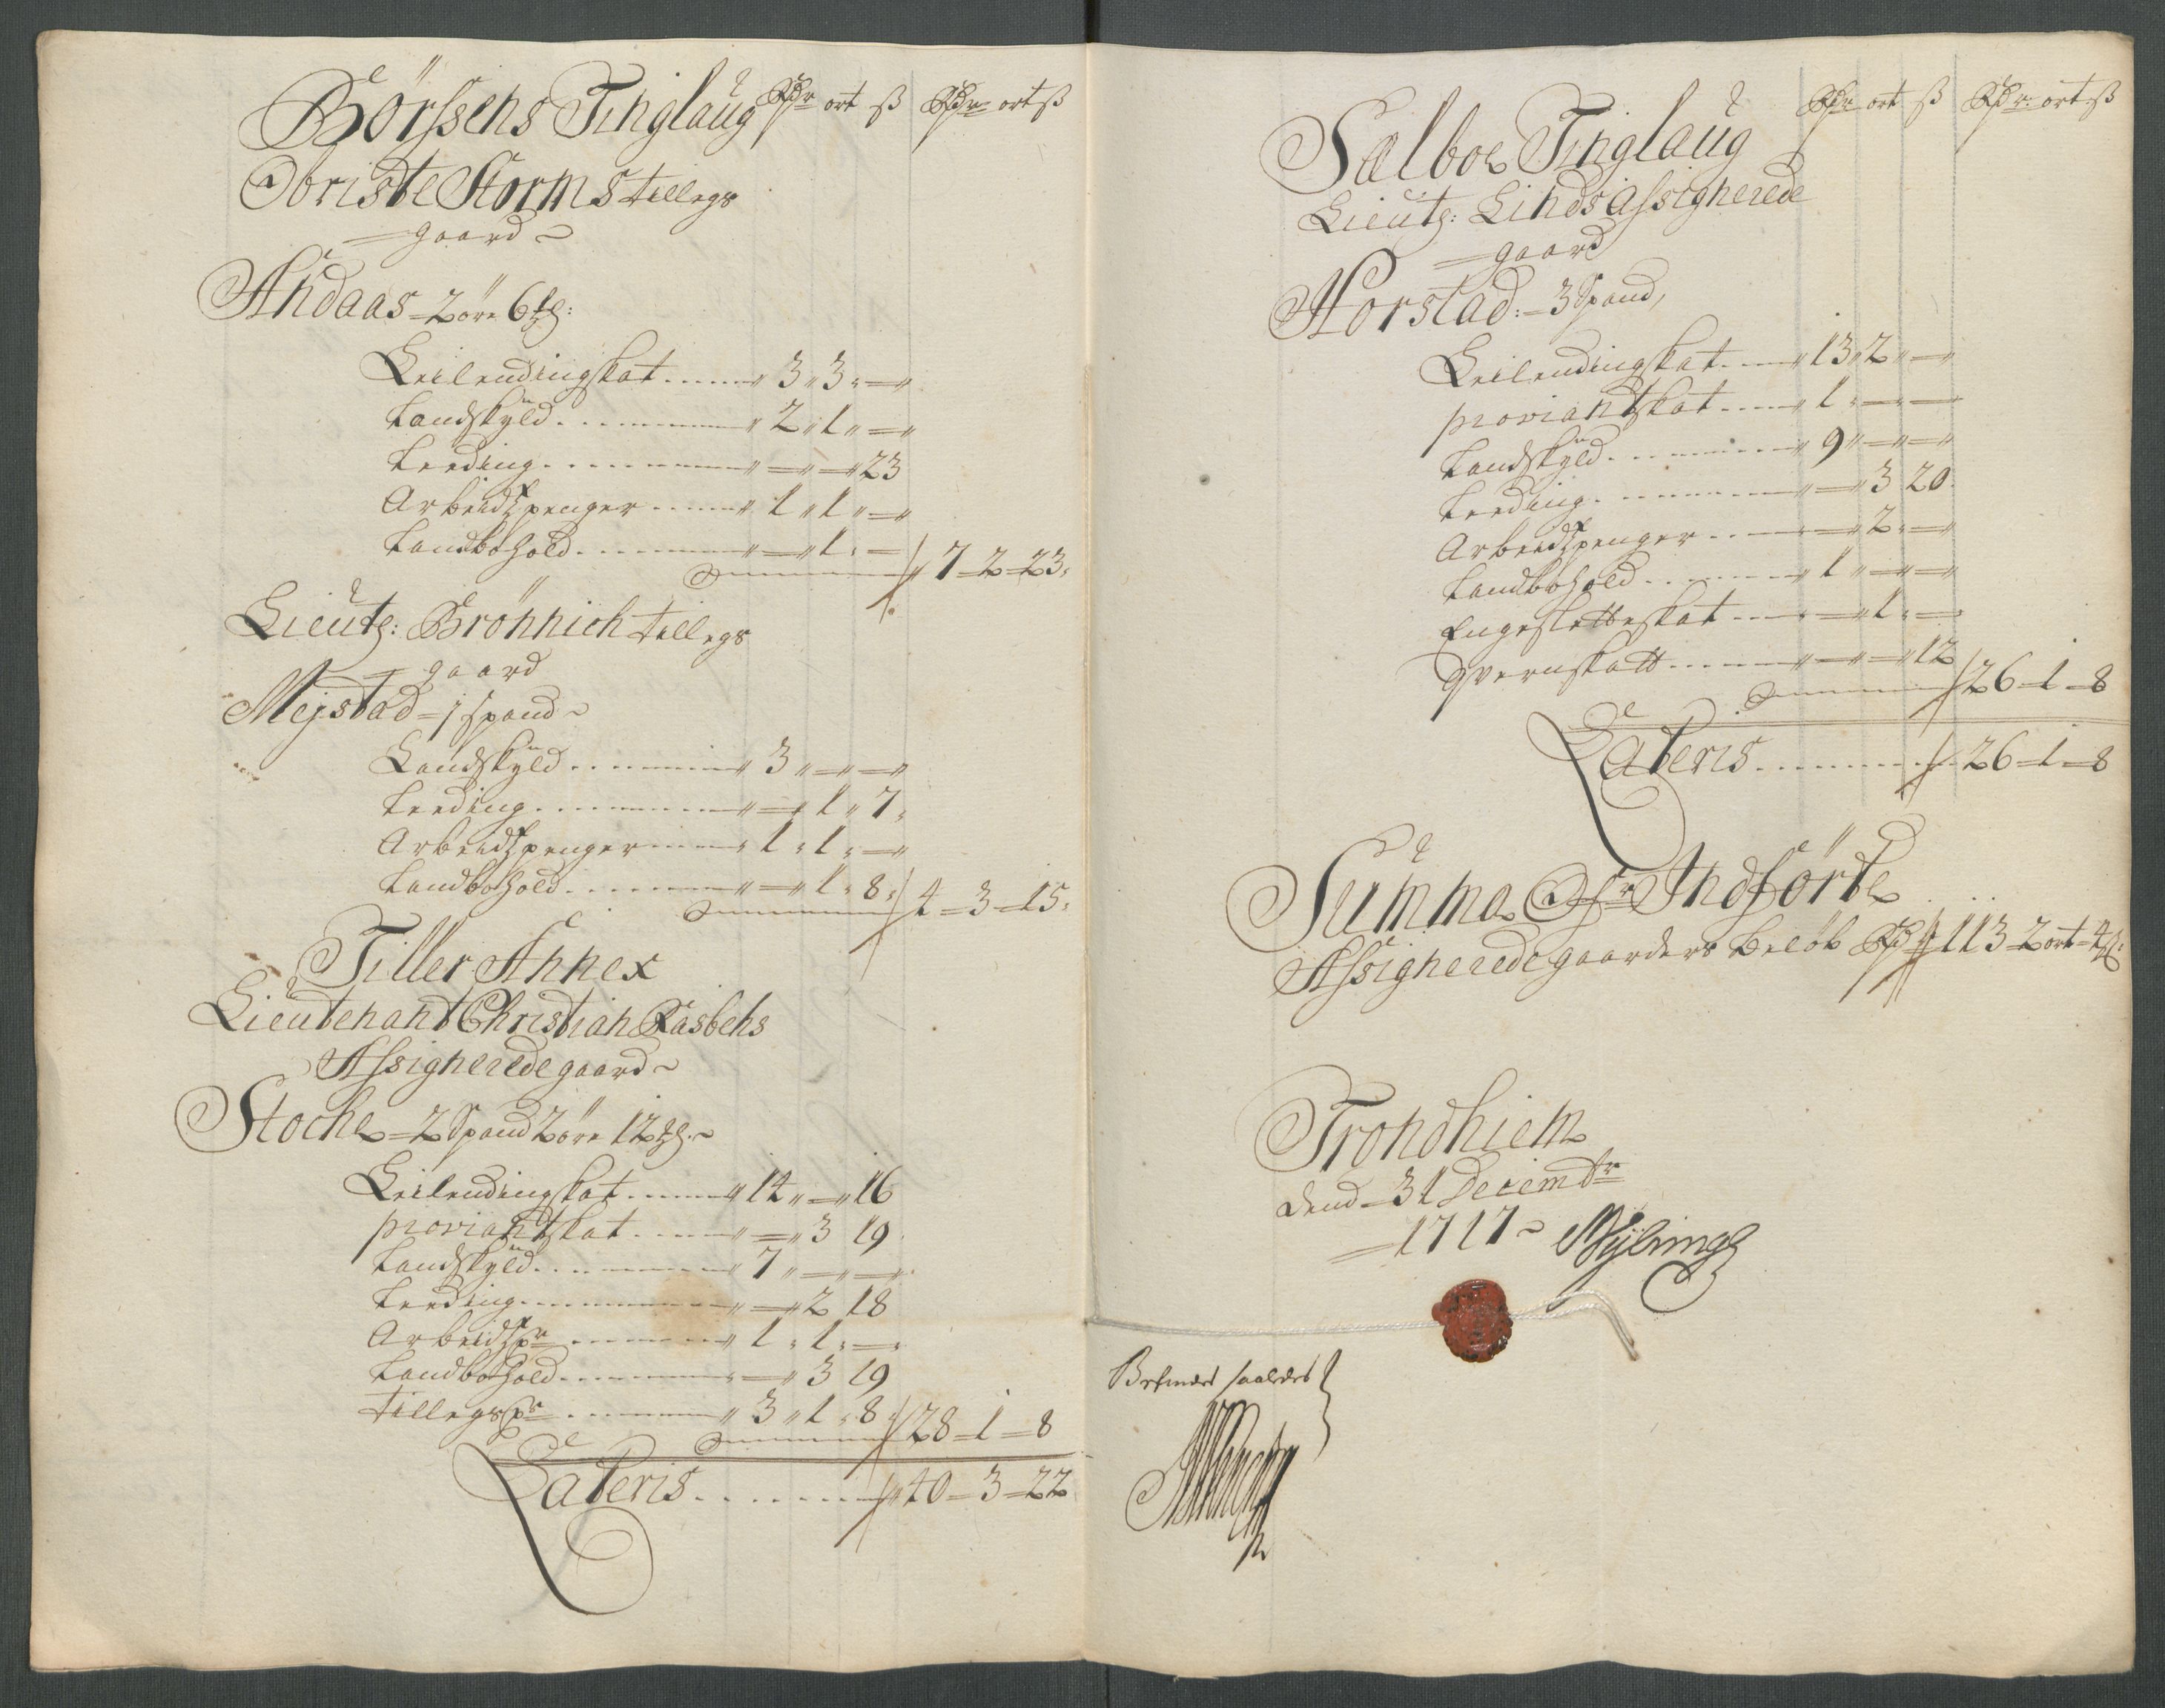 Börssens Tinglaug Rdr ort ß Rdr ort ß
Obriste Storms tillegs
gaard
Andaas 2 öre 6 :
Leilendingskat 3 3
Landskÿld 2 1
Leeding 23
Arbeidspenger 1 1
Landbohold 1
7 2 23
Lieut: Brönnich tillegs
gaard
Mejstad 1 spand
Landskÿld 3
Leeding 1 7
Arbeidspenger 1 1
Landbohold 1 8
4 3 15
Tiller Annex
Lieutenant Christian Rasbehs
Assignerede gaard
Stocke 2 Spand 2 öre 12
Leilendingskat 14 16
proviantskat 3 19
Landskÿld 7
Leeding 2 18
Arbeidspr 1 1
Landbohold 3 19
tillegspr 3 1 8
28 1 8
Lateris 40 3 22
Sælboe Tinglaug Rdr ort ß Rdr ort ß
Lieut: Linds Assignerede
gaard
Horstad: 3 Spand,
Leilendingskat 13 2
proviantskat 1
Landskÿld 9
Leeding 3 20
Arbeidspenger 2
Landbohold 1
Engesletteskat 1
Qvernskatt 12
26 1 8
Lateris 26 1 8
Summa Indförte
Assignerede gaarders Beløb Rdr 113 2 ort 4 ß
Trondhiem
dend 31 Decembr
1717
Befindes saaledes